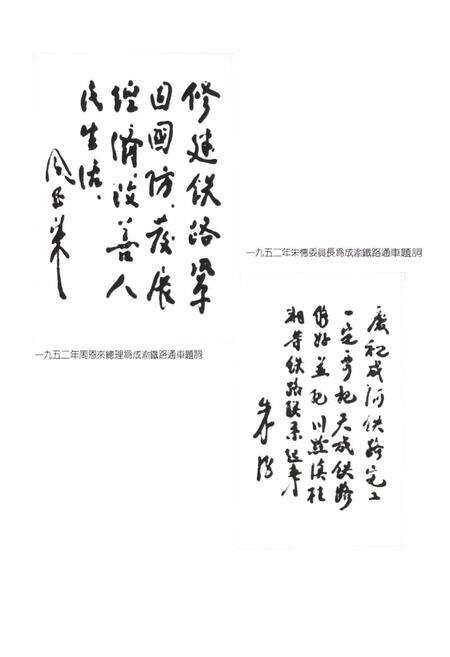 修建铁路巩
固國防、發展
經濟、改善人
民生活、
周恩来
一九五二年周恩來總理爲成渝鐵路通車題詞
一九五二年朱德委員長爲成渝鐵路通車題詞
慶祝成渝铁路完工
一定要把天成铁路
修好並把川黔滇桂
湘等铁路联系起来
朱德